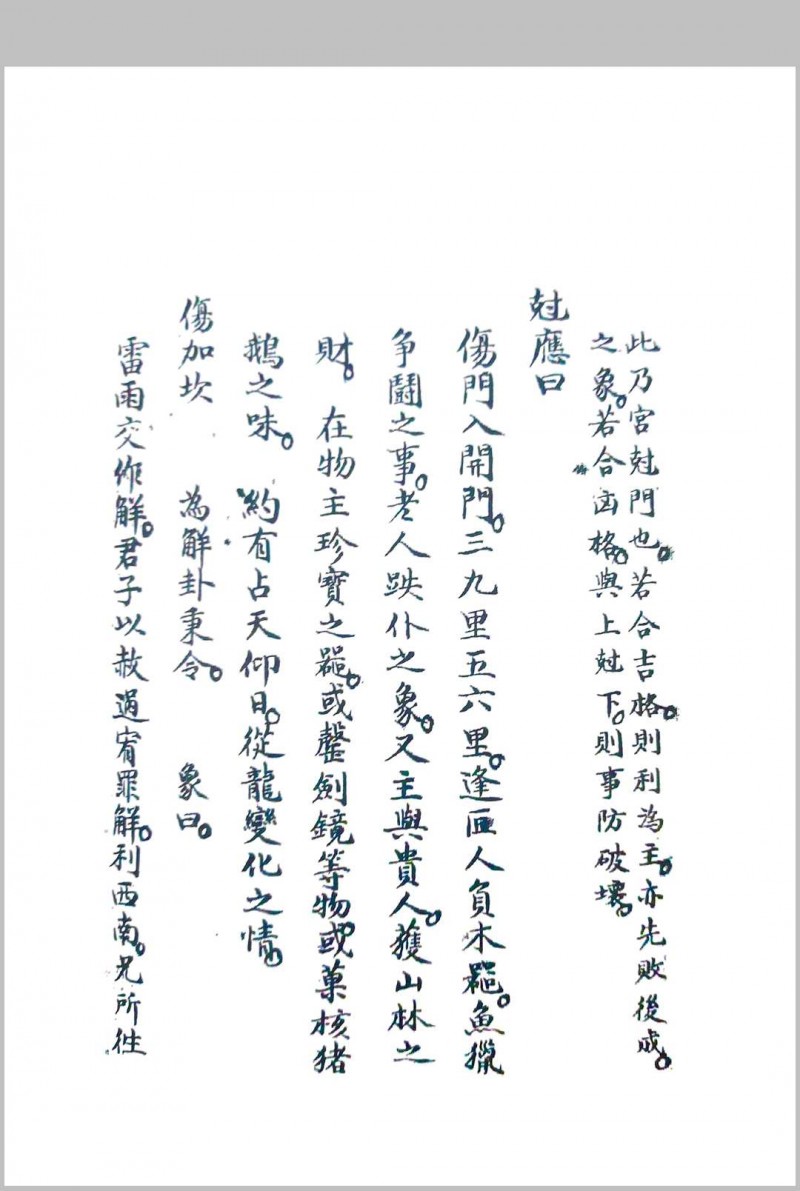 此乃宮尅門也。若合吉格。則利為主。亦先敗後成。
之象。若合凶格。與上尅下。則事防破壞。
尅應曰
傷門入開門。三九里五六里。逢匠人負木器。魚獵
争鬪之事。老人跌仆之象。又主與貴人。獲山林之
財。在物主珍寶之器。或罄劍鏡等物。或菓核猪
鵝之味。約有占天仰日。從龍變化之情。
傷加坎 為解卦秉令。 象曰。
雷雨交作解。君子以赦過宥罪解。利西南。无所往